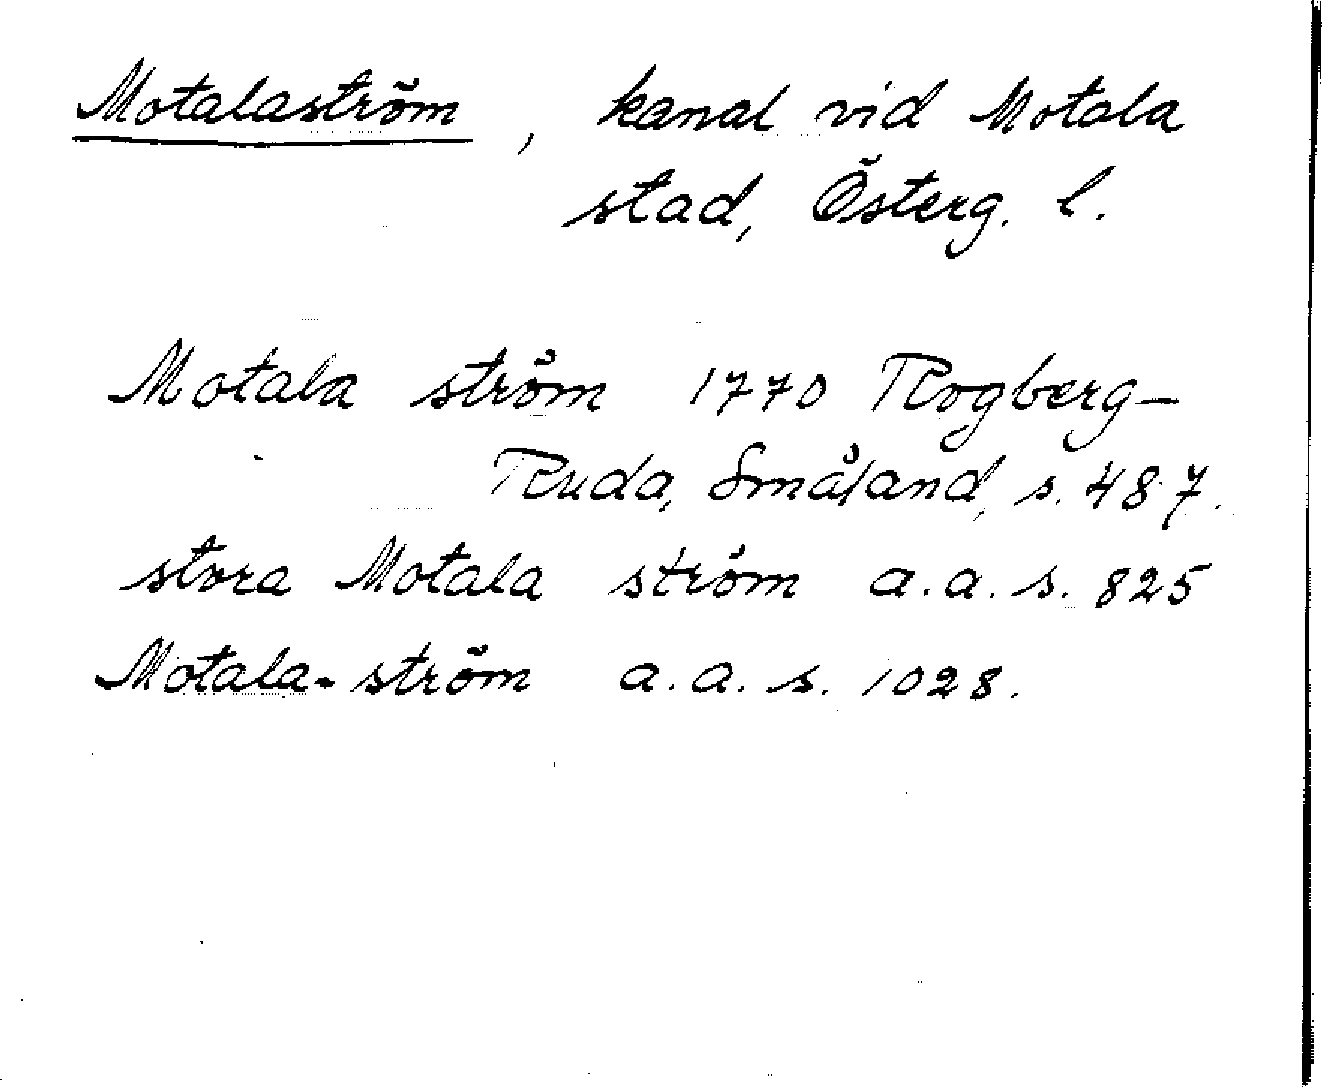 Motalaström, kanal vid Motala
stad, Österg. l.
Motala ström 1770 Rogberg-
Ruda, Småland, s. 487.
stora Motala ström a.a. s. 825
Motala-ström a.a. s. 1028.